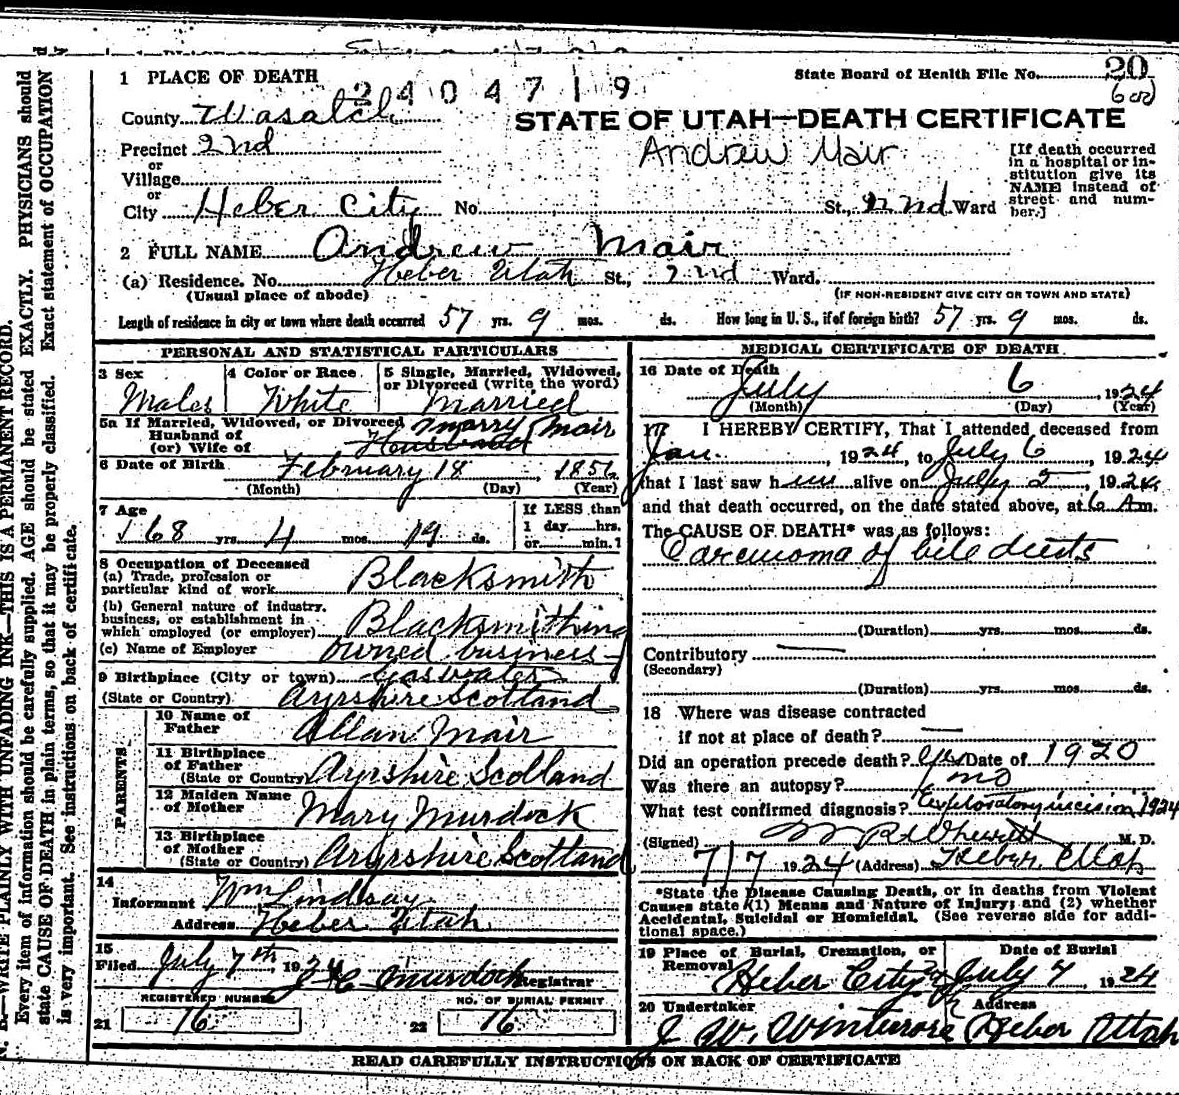 1 PLACE OF DEATH
2404719
State Board of Health File No. 20
County Wasatch
STATE OF UTAH—DEATH CERTIFICATE
Precinct 2nd
Andrew Mair
or
Village
or
City Heber City No. St., 2nd Ward
[If death occurred
in a hospital or in-
stitution give its
NAME instead of
street and num-
ber.]
2 FULL NAME Andrew Mair
(a) Residence. No. Heber Utah St., 2nd Ward.
(Usual place of abode)
(IF NON-RESIDENT GIVE CITY OR TOWN AND STATE)
Length of residence in city or town where death occurred 57 yrs. 9 mos. ds. How long in U. S., if of foreign birth? 57 yrs. 9 mos. ds.
PERSONAL AND STATISTICAL PARTICULARS
3 Sex
Males
4 Color or Race
White
5 Single, Married, Widowed,
or Divorced (write the word)
Married
5a If Married, Widowed, or Divorced
Husband of
(or) Wife of
Mair
Husband
6 Date of Birth February 18, 1856
(Month) (Day) (Year)
7 Age
68 yrs. 4 mos. 19 ds.
If LESS than
1 day hrs.
or min.1
8 Occupation of Deceased
(a) Trade, profession or
particular kind of work Blacksmith
(b) General nature of industry,
business, or establishment in
which employed (or employer) Blacksmithing
(c) Name of Employer owned business
9 Birthplace (City or town) Gaswater
(State or Country) Ayrshire Scotland
PARENTS
10 Name of
Father Allan Mair
11 Birthplace
of Father
(State or Country) Ayrshire Scotland
12 Maiden Name
of Mother Mary Murdock
13 Birthplace
of Mother
(State or Country) Ayrshire Scotland
14
Informant Wm Lindsay
Address Heber Utah
15
Filed July 7th, 1924 Murdock Registrar
REGISTERED NUMBER
NO. OF BURIAL PERMIT
21 16 22 16
MEDICAL CERTIFICATE OF DEATH
16 Date of Death
July 6, 1924
(Month) (Day) (Year)
17 I HEREBY CERTIFY, That I attended deceased from
Jan. , 1924, to July 6, 1924
that I last saw him alive on July 5, 1924,
and that death occurred, on the date stated above, at 6 Am.
The CAUSE OF DEATH* was as follows:
Carcinoma of bile ducts
(Duration) yrs. mos. ds.
Contributory
(Secondary)
(Duration) yrs. mos. ds.
18 Where was disease contracted
if not at place of death?
Did an operation precede death? yes Date of 1920
Was there an autopsy? no
What test confirmed diagnosis? Exploratory incision 1924
(Signed) M. D.
7/7 1924 (Address) Heber, Utah
*State the Disease Causing Death, or in deaths from Violent
Causes state (1) Means and Nature of Injury; and (2) whether
Accidental, Suicidal or Homicidal. (See reverse side for addi-
tional space.)
19 Place of Burial, Cremation, or
Removal
Date of Burial
Heber City July 7 1924
20 Undertaker Address
J. W. Winterrose Heber Utah
READ CAREFULLY INSTRUCTIONS ON BACK OF CERTIFICATE
B.—WRITE PLAINLY WITH UNFADING INK—THIS IS A PERMANENT RECORD.
Every item of information should be carefully supplied. AGE should be stated EXACTLY. PHYSICIANS should
state CAUSE OF DEATH in plain terms, so that it may be properly classified. Exact statement of OCCUPATION
is very important. See instructions on back of certificate.